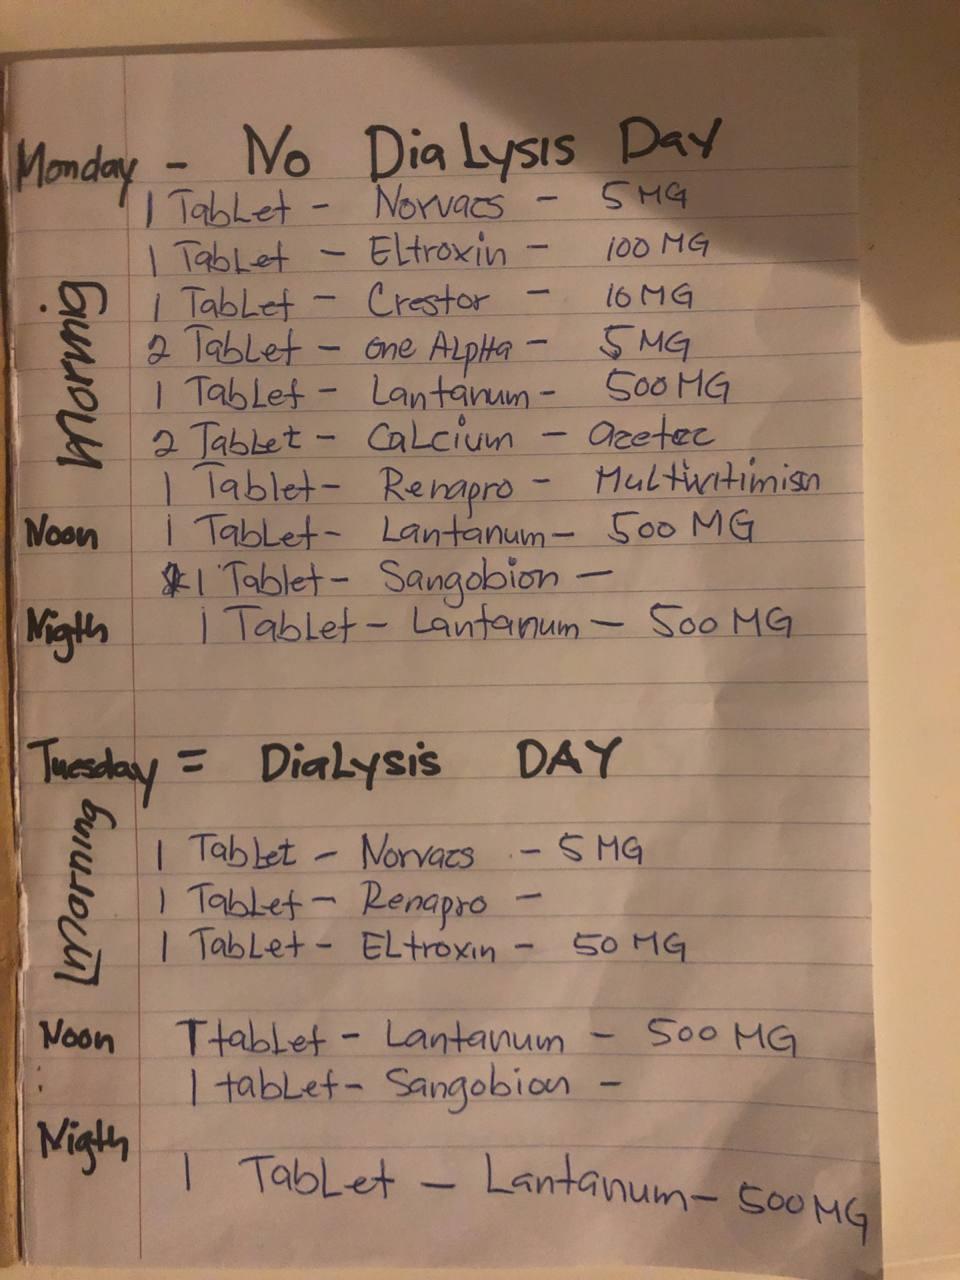 Monday - No Dialysis Day
Morning
1 Tablet - Norvacs - 5 MG
1 Tablet - Eltroxin - 100 MG
1 Tablet - Crestor - 10 MG
2 Tablet - one Alpha - 5 MG
1 Tablet - Lantanum - 500 MG
2 Tablet - Calcium -
1 Tablet - Renapro -
Noon 1 Tablet - Lantanum - 500 MG
1 Tablet - Sangobion -
Nigth 1 Tablet - Lantanum - 500 MG
Tuesday = Dialysis DAY
Morning
1 Tablet - Norvacs - 5 MG
1 Tablet - Renapro -
1 Tablet - Eltroxin - 50 MG
Noon 1 tablet - Lantanum - 500 MG
: 1 tablet - Sangobion -
Nigth
1 Tablet - Lantanum - 500 MG